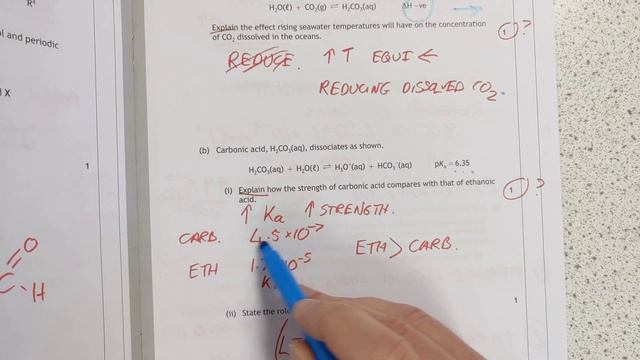 R¹
l and periodic
X
1
H₂O(ℓ) + CO₂(g) ⇌ H₂CO₃(aq) ΔH –ve
Explain the effect rising seawater temperatures will have on the concentration
of CO₂ dissolved in the oceans.
1 ?
REDUCE. ↑ T EQUI ←
REDUCING DISSOLVED CO₂.
(b) Carbonic acid, H₂CO₃(aq), dissociates as shown.
H₂CO₃(aq) + H₂O(ℓ) ⇌ H₃O⁺(aq) + HCO₃⁻(aq) pKₐ = 6.35
(i) Explain how the strength of carbonic acid compares with that of ethanoic
acid.
1 ?
↑ Ka ↑ STRENGTH.
CARB. 4.5 × 10⁻⁷
ETH > CARB.
ETH 1. 10⁻⁵
K
O
C - H
1
(ii) State the